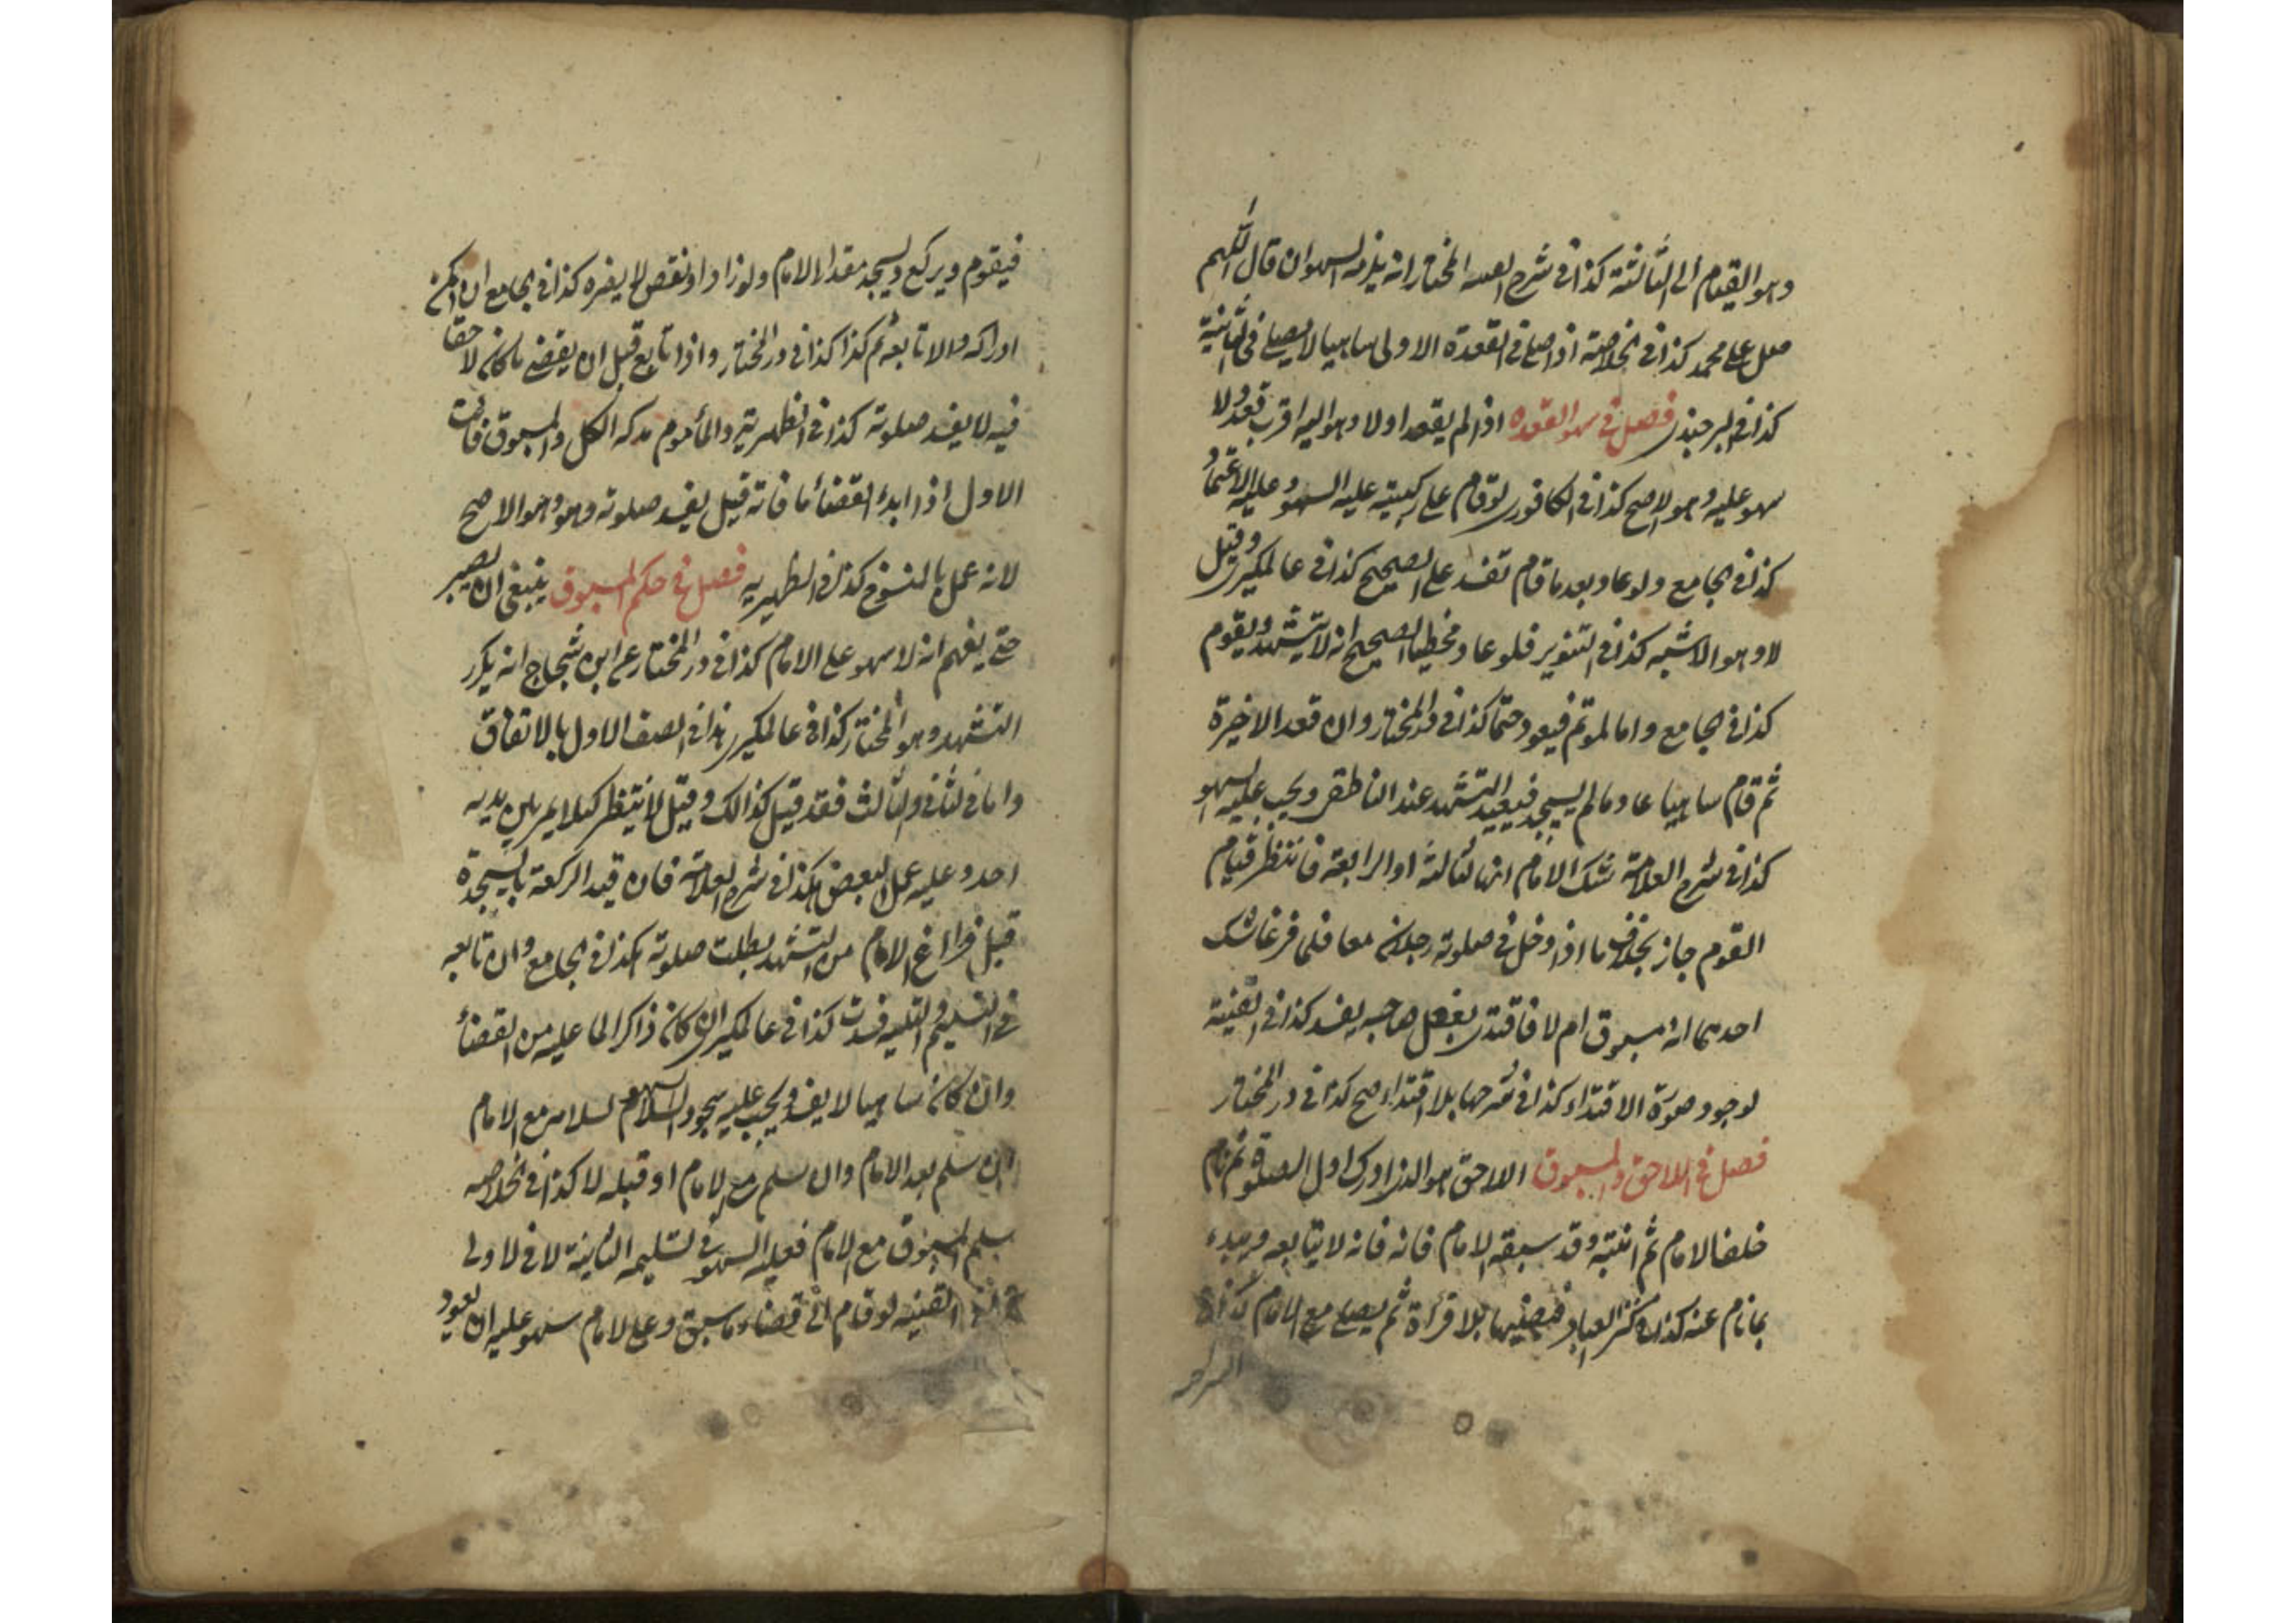 وهو القيام الى الثالثة كذا فى شرح العلامة المختار انه يلزمه السهو ان قال اللهم
صل على محمد كذا فى الخلاصة اذا صلى فى القعدة الاولى ساهيا لا يصلى فى الثانية
كذا فى البرجندى فصل فى سهو القعدة اذا لم يقعد اولا وهو اليه اقرب قعد ولا
سهو عليه وهو الاصح كذا فى الكافورى لو قام على ركبتيه عليه السهو وعليه الاعتماد
كذا فى الجامع ولو عاد بعد ما قام تفسد على الصحيح كذا فى عالمكيرى وقيل
لا وهو الاشبه كذا فى التنوير فلو عاد مخطيا الصحيح انه لا يتشهد ويقوم
كذا فى الجامع واما الموتم فيعود حتما كذا فى در المختار وان قعد الاخيرة
ثم قام ساهيا عاد ما لم يسجد فيعيد التشهد عند الناطقى ويجب عليه السهو
كذا فى شرح العلامة شك الامام انها ثالثة او الرابعة فانتظر قيام
القوم جاز بخلاف ما اذا دخل فى صلوته رجلان معا فلما فرغا شك
احدهما انه مسبوق ام لا فاقتدى بفعل صاحبه يفسد كذا فى القنية
لوجود صورة الاقتداء كذا فى شرحها بلا اقتداء صح كذا فى در المختار
فصل فى اللاحق والمسبوق اللاحق هو الذى ادرك اول الصلوة ثم نام
خلف الامام ثم انتبه وقد سبقه الامام فانه فانه لا يتابعه ويبدء
بما نام عنه كذا فى كنز العباد فيصليها بلا قراءة ثم يصلى مع الامام كذا فى
السراجية
فيقوم ويركع ويسجد مقدار الامام ولو زاد او نقص لا يضره كذا فى الجامع ان امكن
ادراكه والا تابعه ثم كذا كذا فى در المختار واذا تابع قبل ان يقضى ما كان لاحقا
فيه لا يفسد صلوته كذا فى الظهيرية والمأموم مدركه الكل والمسبوق فائت
الاول اذا ابدء القضاء ما فاته قيل يفسد صلوته وهو وهو الاصح
لانه عمل بالمنسوخ كذا فى الظهيرية فصل فى حكم المسبوق ينبغى ان يصبر
حتى يفهم انه لا سهو على الامام كذا فى در المختار عن ابن شجاع انه يكرر
التشهد وهو المختار كذا فى عالمكيرى هذا فى الصف الاول بالاتفاق
واما فى الثانى والثالث فقد قيل كذالك وقيل لا ينتظر كيلا يمر بين يديه
احد وعليه عمل البعض هكذا فى شرح العلامة فان قيد الركعة بالسجدة
قبل فراغ الامام من التشهد بطلت صلوته هكذا فى الجامع وان تابعه
فى التسليم والتلبيه فسدت كذا فى عالمكيرى ان كان ذاكرا لما عليه من القضاء
وان كان ساهيا لا يفسد ويجب عليه سجود السهو السلام لسلامه مع الامام
ان سلم بعد الامام وان سلم مع الامام او قبله لا كذا فى الخلاصه
سلم المسبوق مع الامام فعليه السهو فى تسليمه الثانية لا فى الاولى
كذا فى القنيه لو قام الى قضاء ما سبق وعلى الامام سهو عليه ان يعود